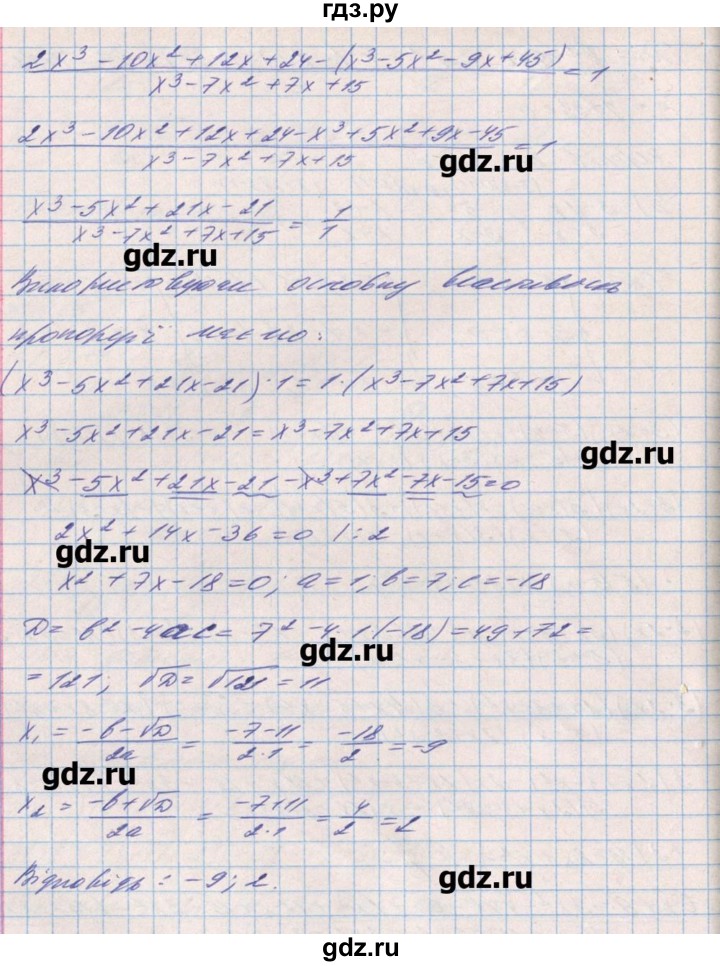 гдз.ру
2x³ - 10x² + 12x + 24 - (x³ - 5x² - 9x + 45) / x³ - 7x² + 7x + 15 = 1
2x³ - 10x² + 12x + 24 - x³ + 5x² + 9x - 45 / x³ - 7x² + 7x + 15 = 1
gdz.ru
x³ - 5x² + 21x - 21 / x³ - 7x² + 7x + 15 = 1/1
gdz.ru
Використовуючи основну властивість
пропорції маємо:
(x³ - 5x² + 21x - 21) · 1 = 1 · (x³ - 7x² + 7x + 15)
x³ - 5x² + 21x - 21 = x³ - 7x² + 7x + 15
gdz.ru
x³ - 5x² + 21x - 21 - x³ + 7x² - 7x - 15 = 0
2x² + 14x - 36 = 0 /:2
gdz.ru
x² + 7x - 18 = 0; a = 1; b = 7; c = -18
D = b² - 4ac = 7² - 4 · 1 (-18) = 49 + 72 =
gdz.ru
= 121; √D = √121 = 11
x₁ = -b - √D / 2a = -7 - 11 / 2·1 = -18 / 2 = -9
gdz.ru
x₂ = -b + √D / 2a = -7 + 11 / 2·1 = 4 / 2 = 2
Відповідь: -9; 2.
gdz.ru
gdz.ru